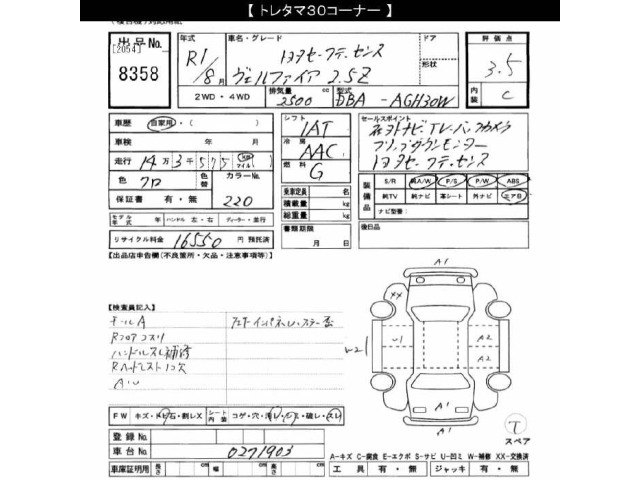 【 トレタマ30コーナー 】
出品No. [2054] 8358
年式 R1/8月
車名・グレード トヨタセーフティセンス
ヴェルファイア 2.5Z
ドア 形状
評価点 3.5
内装 C
2WD・4WD
排気量 2500 cc
型式 DBA -AGH30W
車歴 自家用・( )
車検 年 月
走行 14万3千575 (km マイル)
色 クロ 色替 カラーNo. 220
保証書 有・無
モデル年式 年 ハンドル 左・右 ディーラー・並行
リサイクル料金 16550 円 預託済
シフト IAT
冷房 AAC
燃料 G
乗車定員 名
積載量 kg
総重量 kg
書類期限 月 日
セールスポイント
ナビTV バックカメラ
フリップダウンモニター
トヨタセーフティセンス
装備品 S/R 純A/W P/S P/W ABS
純TV 純ナビ 革シート 外ナビ エアB
ナビ型番:
後日品
【出品店申告欄(不良箇所・欠品・注意事項等)】
【検査員記入】
Rフロアコスリ
ハンドルスレ補修
A・U
A1
XX
W2 W1 A2
A2
A1
A1
T
スペア
FW キズ・トビ石・割レX
シート内装 コゲ・穴・汚レ・シミ・破レ・スレ
登録No.
車台No. 0271903
車庫証明用 長さ cm 幅 cm 高さ cm
A-キズ C-腐食 E-エクボ S-サビ U-凹ミ W-補修 XX-交換済
工具 有・無 ジャッキ 有・無